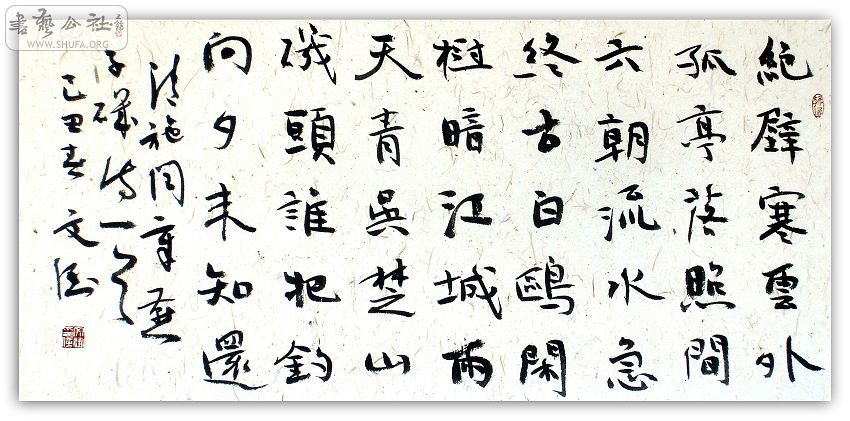 絕壁寒雲外
孤亭落照間
六朝流水急
終古白鷗閑
樹暗江城雨
天青吳楚山
磯頭誰把釣
向夕未知還
清施閏章燕
子磯詩一首
己丑春 文
書藝公社
WWW.SHUFA.ORG